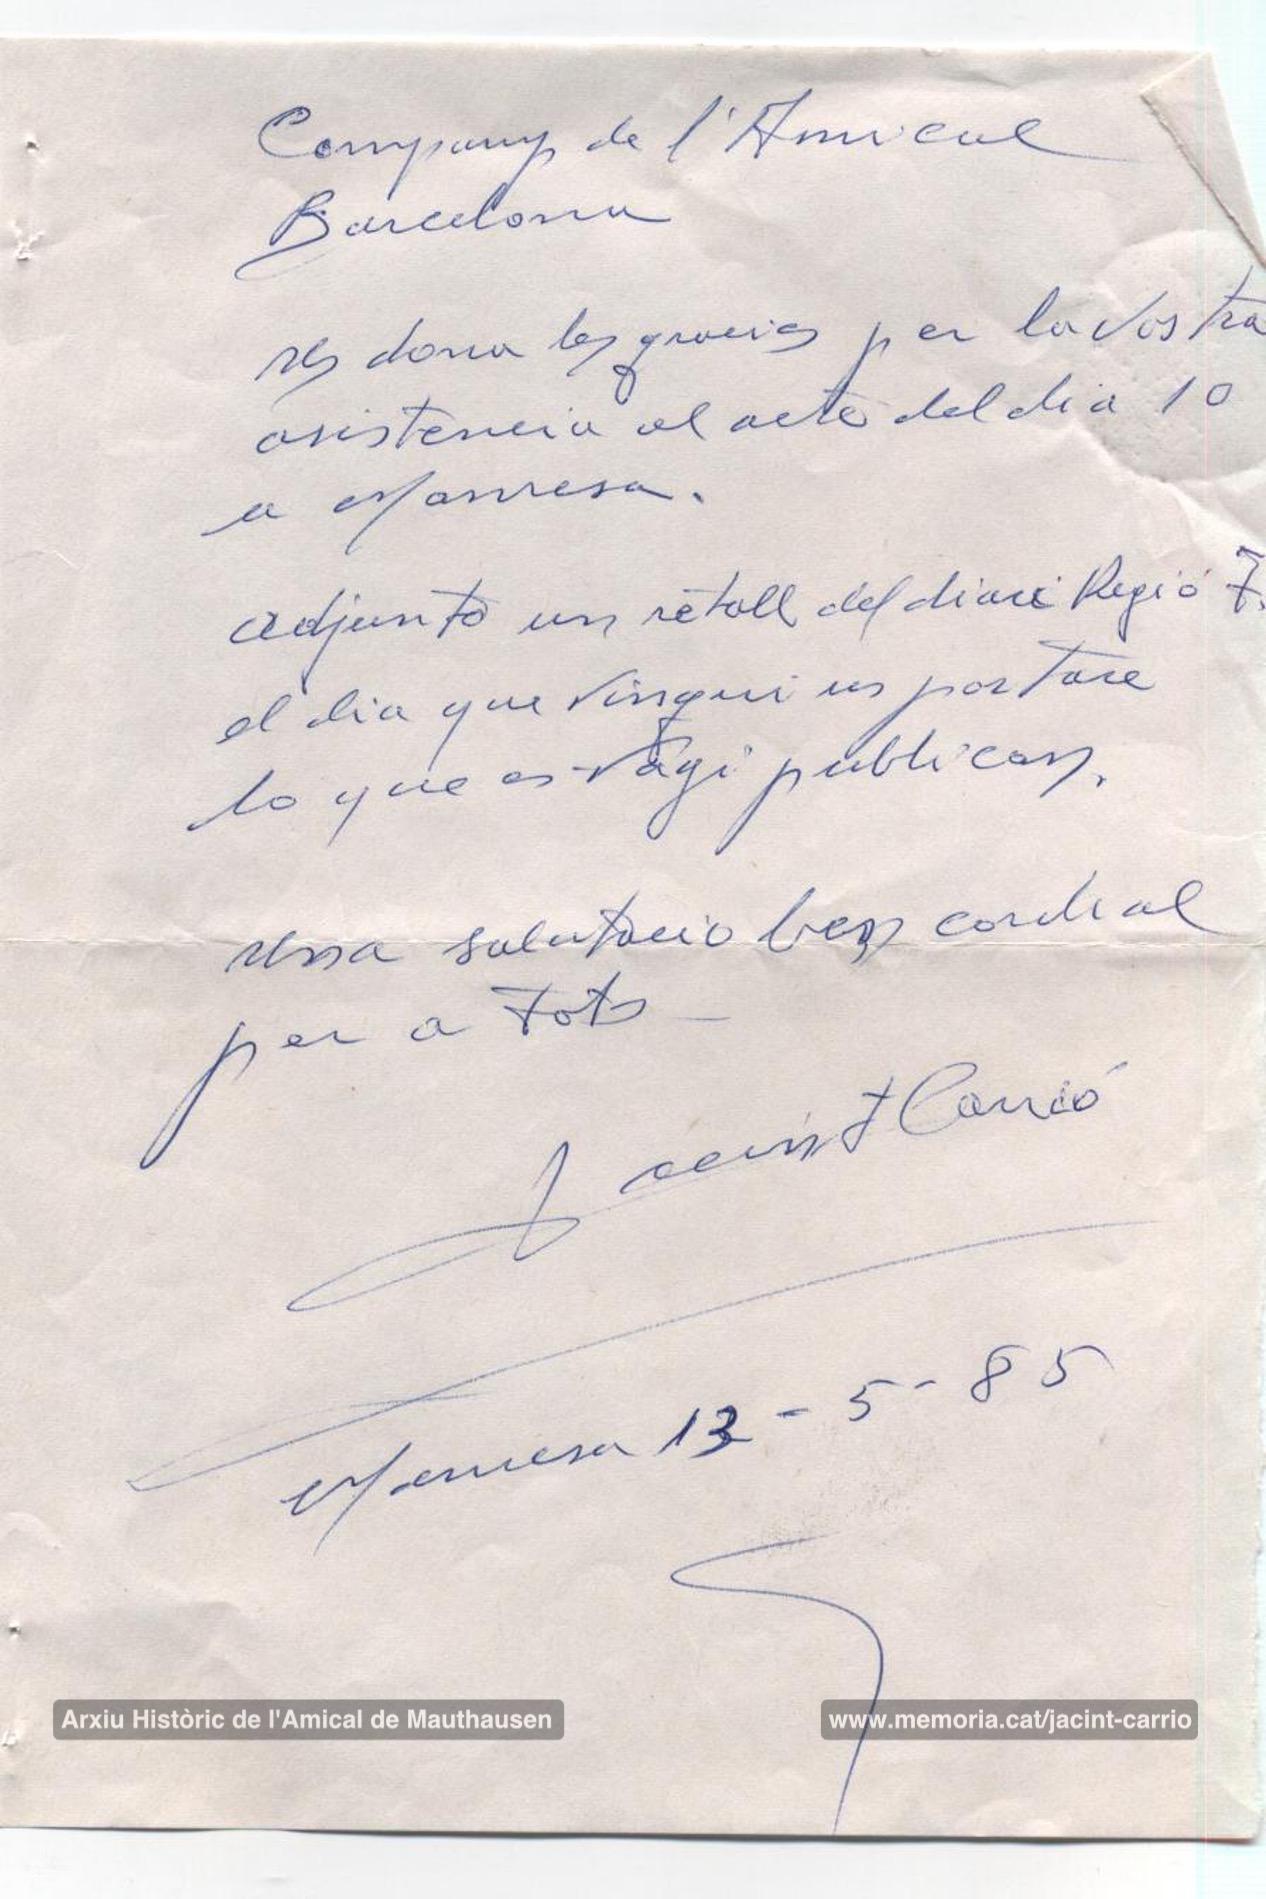 Company de l'Amical
Barcelona
us dona les gracies per la vostra
asistencia al acte del dia 10
a Manresa.
adjunto un retall del diari Regió 7.
el dia que vingui us portare
lo que es vagi publican.
una salutacio ben cordial
per a tots
Jacint Carrió
Manresa 13-5-85
Arxiu Històric de l'Amical de Mauthausen
www.memoria.cat/jacint-carrio